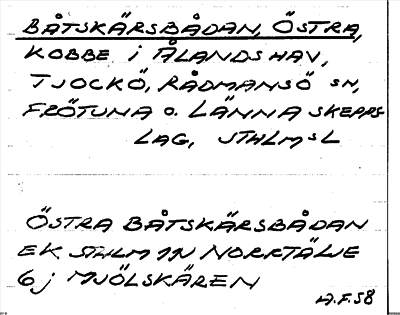 BÅTSKÄRSBÅDAN, ÖSTRA,
KOBBE i ÅLANDS HAV,
TJOCKÖ, RÅDMANSÖ SN,
FRÖTUNA o. LÄNNA SKEPPS-
LAG, STHLMS L
ÖSTRA BÅTSKÄRSBÅDAN
EK STHLM 1N NORRTÄLJE
6j MJÖLSKÄREN
A.F.58